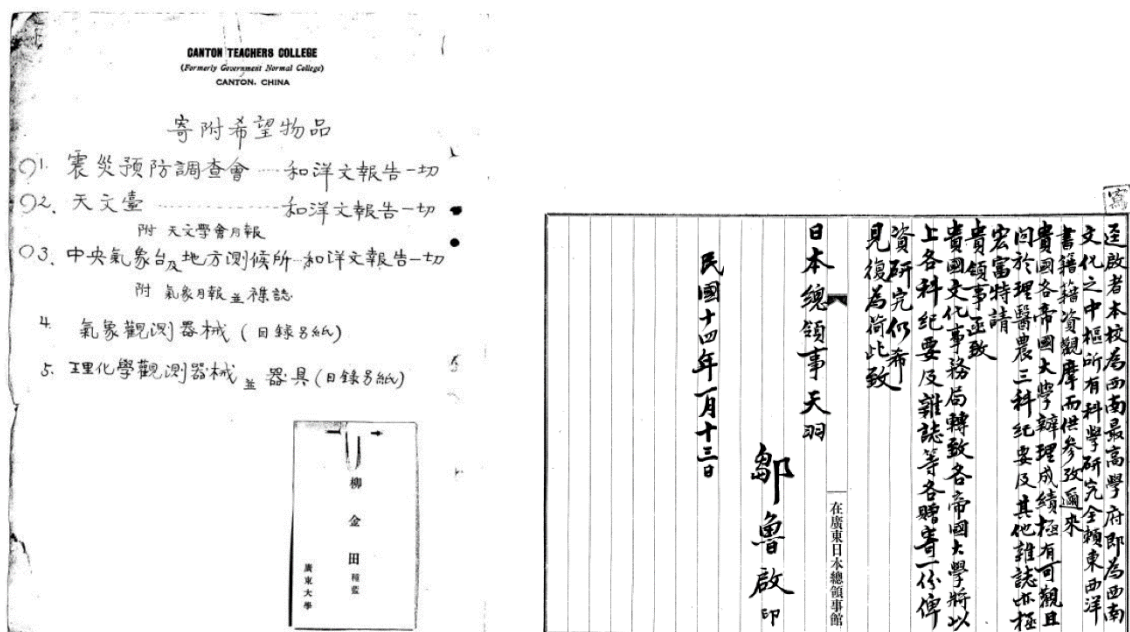 CANTON TEACHERS COLLEGE
(Formerly Government Normal College)
CANTON, CHINA
寄附希望物品
1. 震災預防調查會……和洋文報告一切
2. 天文臺…………和洋文報告一切
附 天文學會月報
3. 中央氣象台及地方測候所…和洋文報告一切
附 氣象月報並襍誌
4. 氣象觀測器械(目錄別紙)
5. 理化學觀測器械並器具(目錄別紙)
柳金田
種藍
廣東大學
寫
逕啟者本校為西南最高學府即為西南
文化之中樞所有科學研究全賴東西洋
書籍藉資觀摩而供參攷邇來
貴國各帝國大學辦理成績極有可觀且
関於理醫農三科紀要及其他雜誌亦極
宏富特請
貴領事函致
貴國文化事務局轉致各帝國大學將以
上各科紀要及雜誌等各贈寄一份俾
資研究仍希
見復為荷此致
日本總領事天羽
鄒魯啟 印
民國十四年一月十三日
在廣東日本總領事館